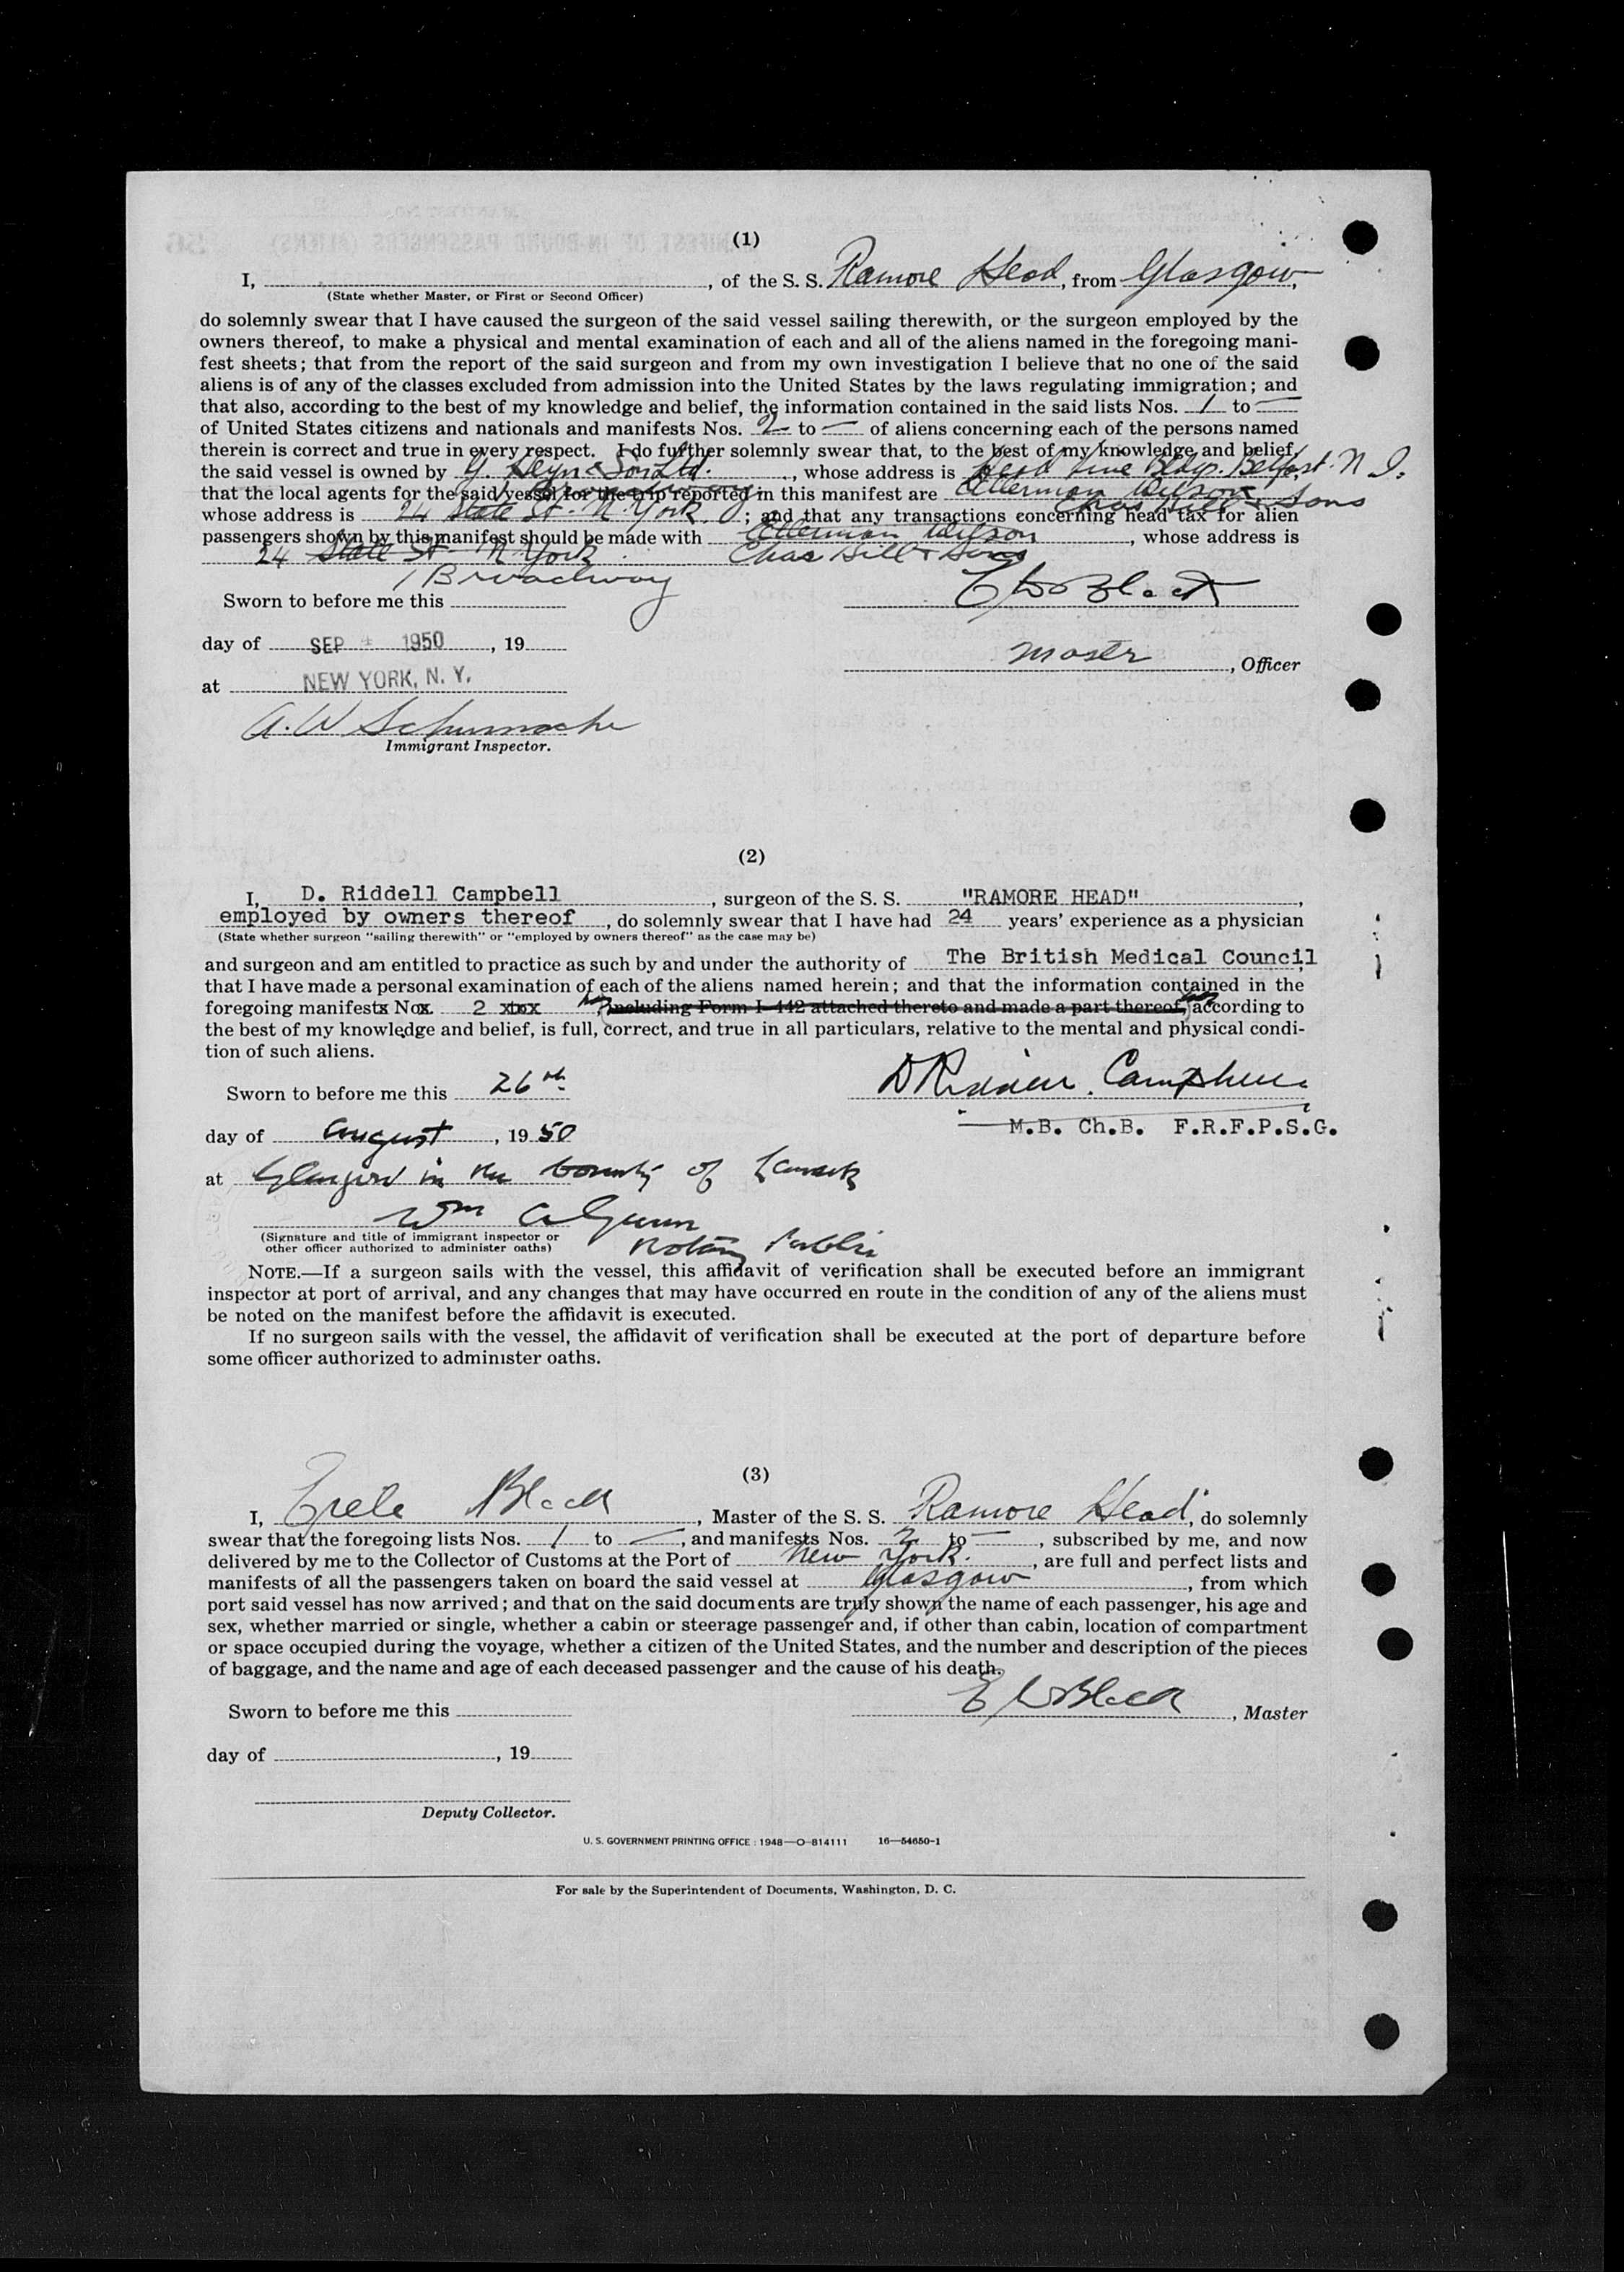 (1)
I, , of the S. S. Ramore Head, from Glasgow,
(State whether Master, or First or Second Officer)
do solemnly swear that I have caused the surgeon of the said vessel sailing therewith, or the surgeon employed by the
owners thereof, to make a physical and mental examination of each and all of the aliens named in the foregoing mani-
fest sheets; that from the report of the said surgeon and from my own investigation I believe that no one of the said
aliens is of any of the classes excluded from admission into the United States by the laws regulating immigration; and
that also, according to the best of my knowledge and belief, the information contained in the said lists Nos. 1 to —
of United States citizens and nationals and manifests Nos. 2 to — of aliens concerning each of the persons named
therein is correct and true in every respect. I do further solemnly swear that, to the best of my knowledge and belief,
the said vessel is owned by G. Heyn & Son Ltd., whose address is Head Line Bldgs. Belfast. N I.
that the local agents for the said vessel for the trip reported in this manifest are Ellerman Wilson Chas Hill & Sons
1 Broadway
whose address is 24 State St. N. York.; and that any transactions concerning head tax for alien
passengers shown by this manifest should be made with Ellerman Wilson, whose address is
24 State St N York Chas Hill & Sons
1 Broadway
Sworn to before me this E W Black
day of SEP 1950, 19
Master, Officer
at NEW YORK, N. Y.
A. W Schumache
Immigrant Inspector.
(2)
I, D. Riddell Campbell, surgeon of the S. S. "RAMORE HEAD",
employed by owners thereof, do solemnly swear that I have had 24 years' experience as a physician
(State whether surgeon "sailing therewith" or "employed by owners thereof" as the case may be)
and surgeon and am entitled to practice as such by and under the authority of The British Medical Council
that I have made a personal examination of each of the aliens named herein; and that the information contained in the
foregoing manifestx Nox. 2 xtox , including Form I-442 attached thereto and made a part thereof, according to
the best of my knowledge and belief, is full, correct, and true in all particulars, relative to the mental and physical condi-
tion of such aliens.
Sworn to before me this 26th D Riddell Campbell
M.B. Ch.B. F.R.F.P.S.G.
day of August, 1950
at Glasgow in the County of Lanark
Wm A Gunn
(Signature and title of immigrant inspector or
other officer authorized to administer oaths) Notary Public
NOTE.—If a surgeon sails with the vessel, this affidavit of verification shall be executed before an immigrant
inspector at port of arrival, and any changes that may have occurred en route in the condition of any of the aliens must
be noted on the manifest before the affidavit is executed.
If no surgeon sails with the vessel, the affidavit of verification shall be executed at the port of departure before
some officer authorized to administer oaths.
(3)
I, Black, Master of the S. S. Ramore Head, do solemnly
swear that the foregoing lists Nos. 1 to —, and manifests Nos. 2 to —, subscribed by me, and now
delivered by me to the Collector of Customs at the Port of New York., are full and perfect lists and
manifests of all the passengers taken on board the said vessel at Glasgow, from which
port said vessel has now arrived; and that on the said documents are truly shown the name of each passenger, his age and
sex, whether married or single, whether a cabin or steerage passenger and, if other than cabin, location of compartment
or space occupied during the voyage, whether a citizen of the United States, and the number and description of the pieces
of baggage, and the name and age of each deceased passenger and the cause of his death.
Sworn to before me this E W Black, Master
day of , 19
Deputy Collector.
U. S. GOVERNMENT PRINTING OFFICE : 1948—O-814111 16—54650-1
For sale by the Superintendent of Documents, Washington, D. C.